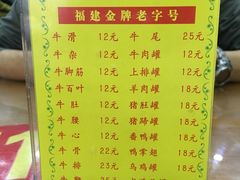 福建金牌老字号
牛滑 12元 牛尾 25元
牛肉 12元 牛肉罐 12元
牛脚筋 12元 上排罐 12元
牛百叶 12元 羊肉罐 18元
牛肚 12元 猪肚罐 18元
牛腰 12元 猪蹄罐 18元
牛心 12元 番鸭罐 18元
牛骨 22元 鸭掌翅 18元
牛排 23元 乌鸡罐 18元